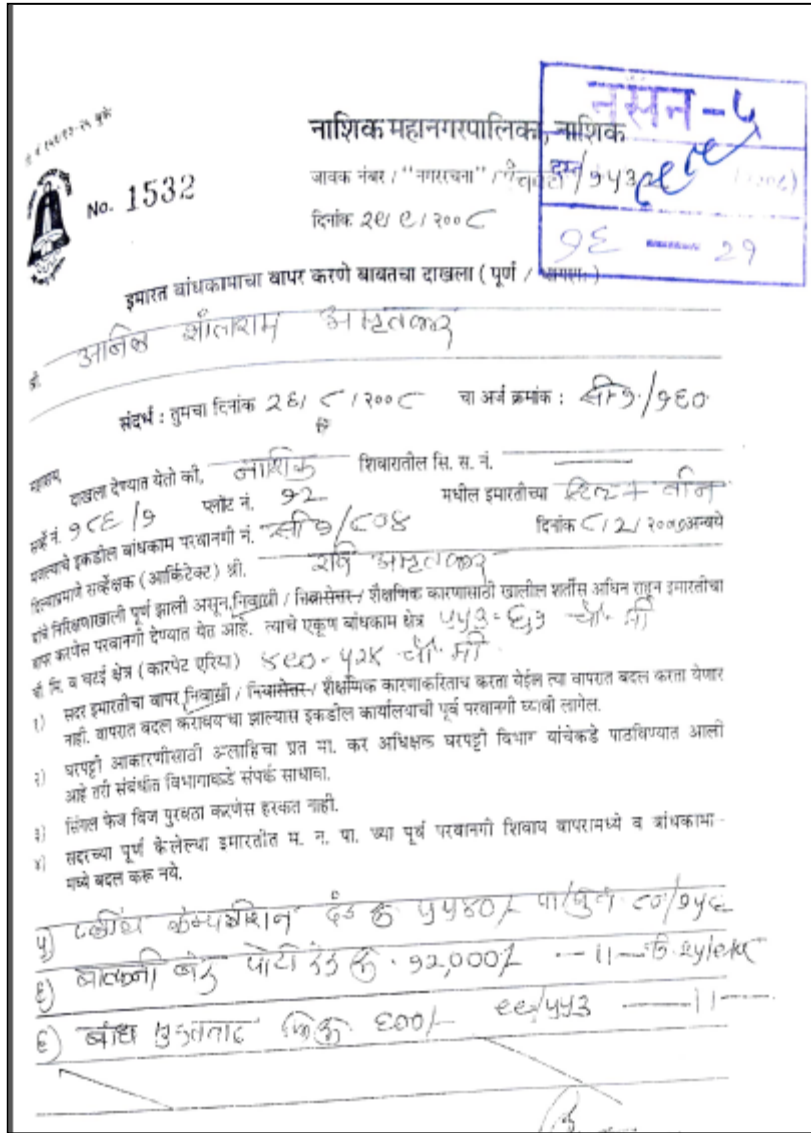 नसन-५
नाशिक महानगरपालिका, नाशिक
जावक नंबर / "नगररचना" / पंचवटी / १५३
No. 1532
दिनांक २९/ ९/ २००८
१६ — २१
इमारत बांधकामाचा वापर करणे बाबतचा दाखला ( पूर्ण /
श्री. अनिल शांताराम अमृतकार
संदर्भ : तुमचा दिनांक २६/ ८ / २००८ चा अर्ज क्रमांक : सी१/१६०
महाशय,
दाखला देण्यात येतो की, नाशिक शिवारातील सि. स. नं. ——
सर्व्हे नं. १८६/१ प्लॉट नं. १२ मधील इमारतीच्या स्टिल्ट + तीन
मजल्याचे इकडील बांधकाम परवानगी नं. सी१/८०४ दिनांक ८/२/ २००७ अन्वये
दिल्याप्रमाणे सर्व्हेक्षक ( आर्किटेक्ट ) श्री. रवि अमृतकार
यांचे निरिक्षणाखाली पूर्ण झाली असून, निवासी / निवासेत्तर / शैक्षणिक कारणासाठी खालील शर्तीस अधिन राहून इमारतीचा
वापर करणेस परवानगी देण्यात येत आहे. त्याचे एकूण बांधकाम क्षेत्र ५५३= ६१ चौ. मी
चौ मि. व चटई क्षेत्र ( कारपेट एरिया ) ४९०-५२४ चौ. मी
१) सदर इमारतीचा वापर निवासी / निवासेत्तर / शैक्षणिक कारणाकरिताच करता येईल त्या वापरात बदल करता येणार
नाही. वापरात बदल करावयाचा झाल्यास इकडील कार्यालयाची पूर्व परवानगी घ्यावी लागेल.
२) घरपट्टी आकारणीसाठी अलाहिचा प्रत मा. कर अधिक्षक घरपट्टी विभाग यांचेकडे पाठविण्यात आली
आहे तरी संबंधीत विभागाकडे संपर्क साधावा.
३) सिंगल फेज विज पुरवठा करणेस हरकत नाही.
४) सदरच्या पूर्ण केलेल्या इमारतीत म. न. पा. च्या पूर्व परवानगी शिवाय वापरामध्ये व बांधकामा-
मध्ये बदल करू नये.
५) दंड रु ५५४०/- पा/पुन. ८०/१५६
६) बाल्कनी दंड रु. १२,०००/- —॥—
६) बांध रु ६००/- ९९/५५३ —॥—